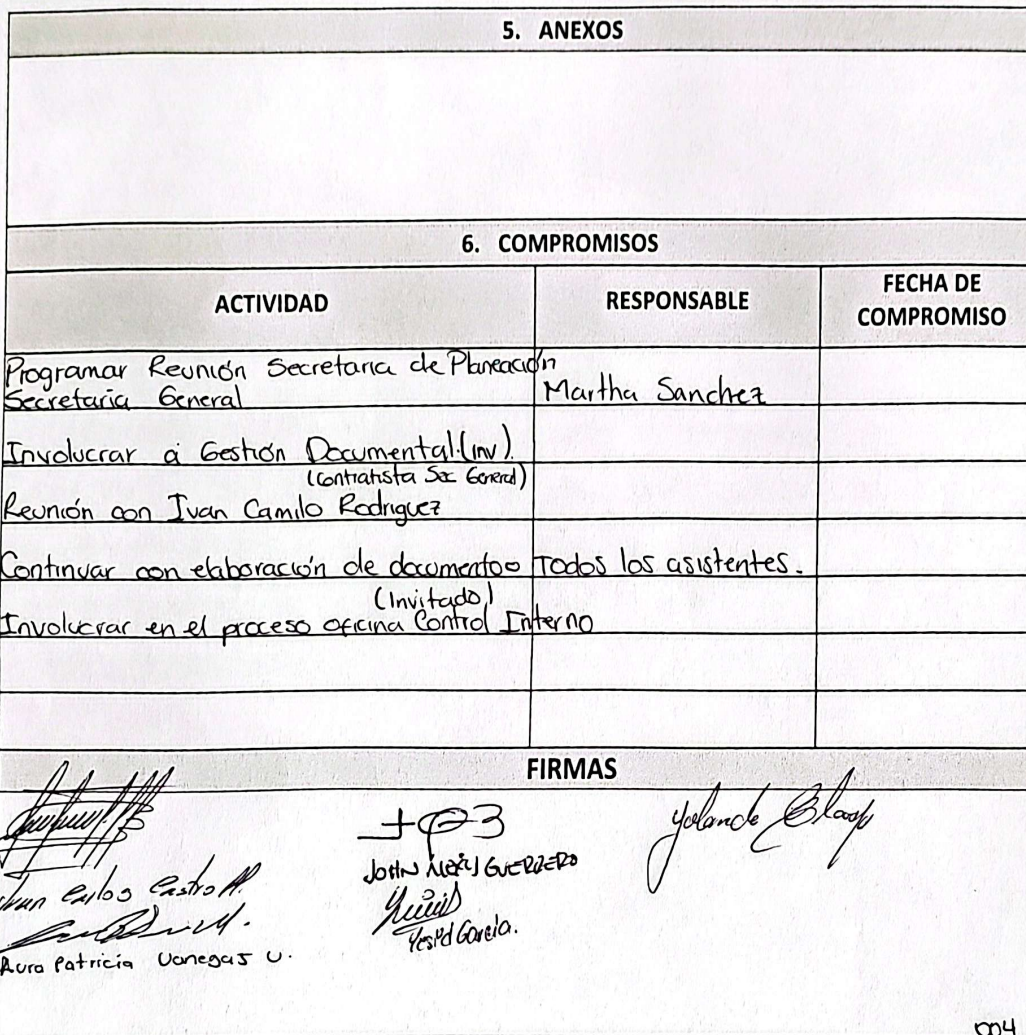 5. ANEXOS
6. COMPROMISOS
ACTIVIDAD RESPONSABLE FECHA DE COMPROMISO
Programar Reunión Secretaria de Planeación
Secretaria General Martha Sanchez
Involucrar a Gestión Documental (inv).
(Contratista Sec General)
Reunión con Ivan Camilo Rodriguez
Continuar con elaboración de documento Todos los asistentes.
(Invitado)
Involucrar en el proceso oficina Control Interno
FIRMAS
Juan Carlos Castro
Aura Patricia Vanegas V.
JOHN GUERRERO
Yesid Garcia.
Yolanda
004